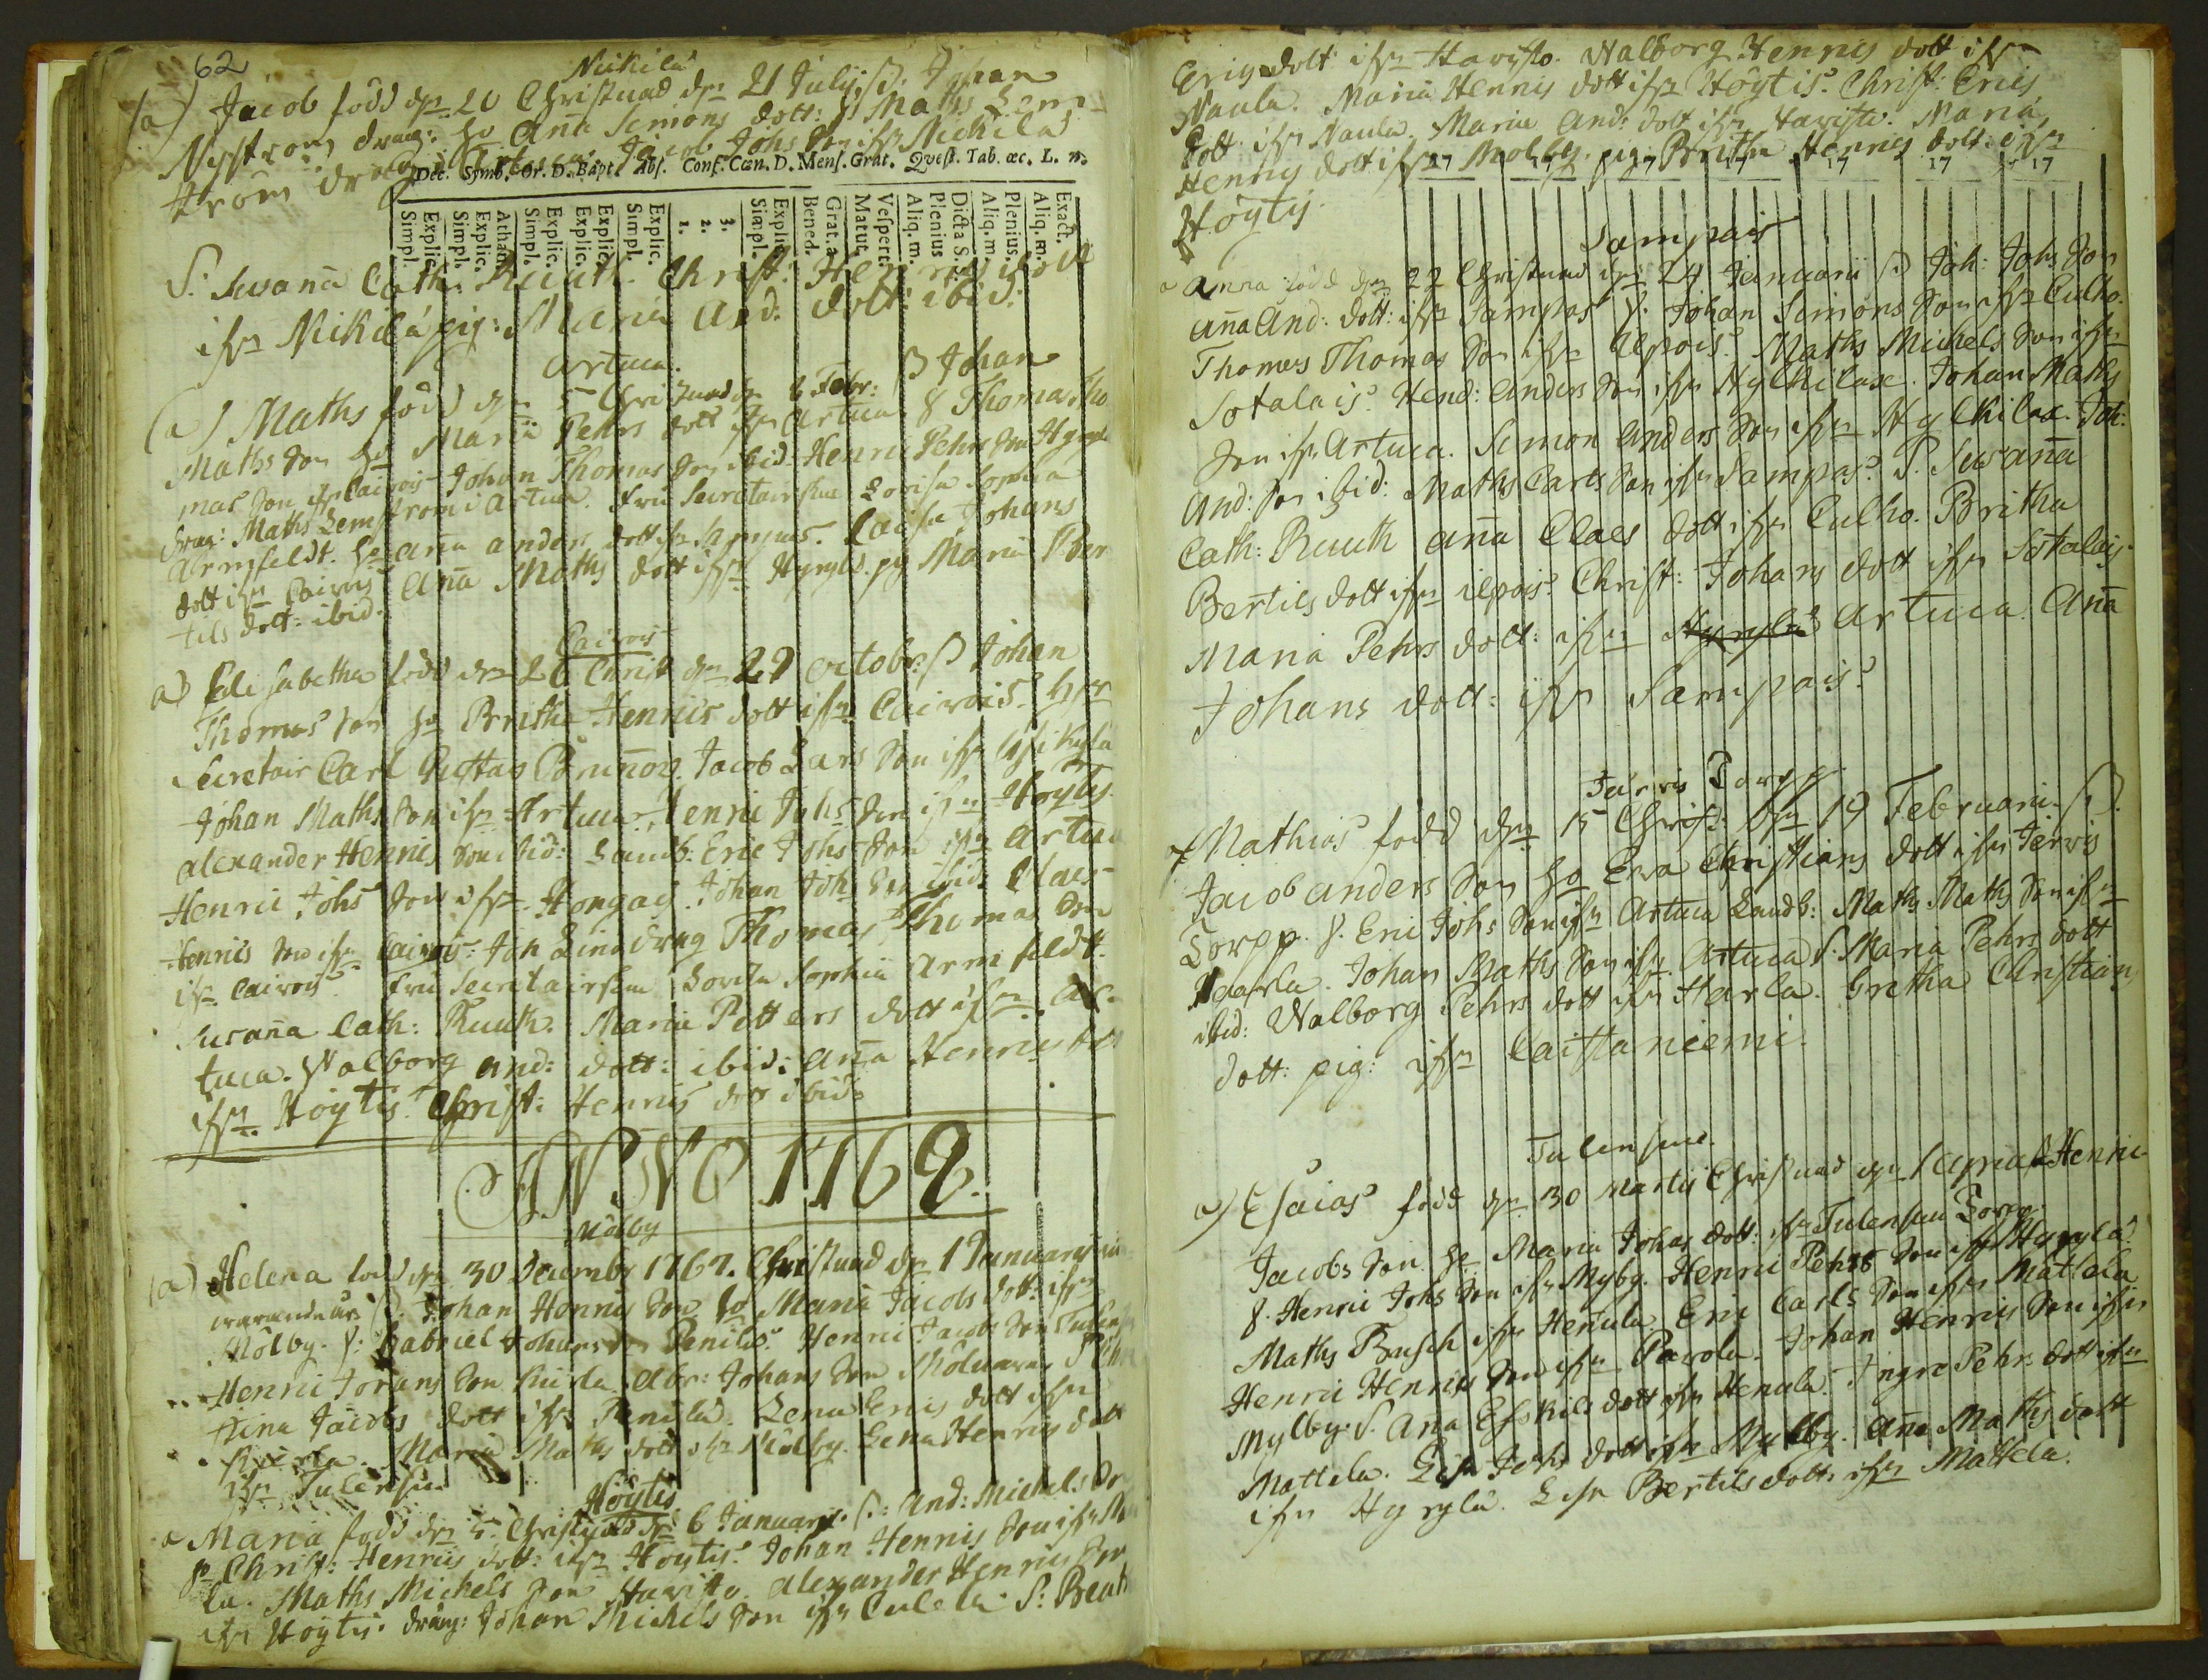 62
Nickilä
(a) Jacob född den 20 Christnad den 21 Julij, P. Johan
Nyström drag: ho Anna Simons dott: f. Maths Lem-
ström drag: Jacob Johs son ifrn Nickilä
Dec. Symb. Or. D. Bapt. Abs. Conf. Cœn. D. Mens. Grat. Quest. Tab. œc. L. n.
Simpl. Explic. Simpl. Explic. Athan. Simpl. Explic. Explic. Explic. Simpl. Explic. 1. 2. 3. Simpl. Explic. Bened. Grat. a. Matut. Vespert. Aliq. m. Plenius Dicta S. S. Aliq. m. Plenius. Aliq. m. Exact.
S. Susanna Cath: Ruuth. Christ: Henrics dott
ifrn Nikilä pig: Maria And: dott: ibid:
Artuca.
(a) Maths född den 5 Christnad den 6 Febr: P Johan
Maths son ho Maria Pehrs dott ifrn Artuca f Thomas Tho
mas son ifrn Cairois Johan Thomas son ibid: Henric Pehrs son Hyryle
drag: Maths Lemström i Artuca. Fru Secretairskan Lovisa Sophia
Armfeldt. ho Anna Anders dott ifrn Sampais. Caisa Johans
dott ifrn Cairois Anna Maths dott ifrn Hyrylä. pig Maria Ber
tils dott: ibid.
Cairois
a) Elisabetha född den 26 Christ den 29 octobr: P Johan
Thomas son ho Britha Henrics dott ifrn Cairois. f Herr
Secretair Carl Gustav Brunow. Jacob Lars son ifrn Yli Kylä
Johan Maths son ifrn Artuca, Henric Johs son ifrn Höytis.
Alexander Henrics son ibid: Landb. Eric Johs son ifrn Artuca
Henric Johs son ifrn Hongais. Johan Joh: son ibid: Claes
Henrics son ifrn Cairois: Joh Lind drag Thomas Thomas son
ifrn Cairois. Fru Secretairskan Lovisa Sophia Armfeldt.
Susanna Cath: Ruuth. Maria Petters dott ifrn Ar-
tuca. Walborg And: dott: ibid: Anna Henrics dott
ifrn Höytis. Christ: Henrics dott ibid.
ANNO 1768.
Mölby
(a) Helena född den 30 Decembr 1767. Christnad den 1 Januarij in
warande år. P. Johan Henrics son ho Maria Jacobs dott: ifrn
Mölby. f: Gabriel Johans son Penilä. Henric Jacobs son Tulensuu
Henric Jörans son Kierla. Abr: Johans son Mölnare. S Chri
stina Jacobs dott ifrn Penilä. Lena Erics dott ifrn
Kierla. Maria Maths dott ifrn Mölby. Lena Henrics dott
ifrn Tulensuu
Höytis.
a Maria född den 5. Christnad den 6 Januarij. P.: And: Michels son
ho Christ: Henrics dott: ifrn Höytis. Johan Henrics son ifrn
la. Maths Michels son Haristo. Alexander Henrics son
ifrn Höytis. dräng: Johan Michels son ifrn Culela. S: Beat
Erics dott ifrn Haristo. Walborg Henrics dott ifrn
Naula. Maria Henrics dott ifrn Höytis. Christ: Erics
dott ifrn Naula. Maria And: dott ifrn Haristo. Maria
Henrics dott ifrn Mölby. pig: Britha Henrics dott: ifrn
Höytis.
17 17 17 17 17 17 17
Sampais
a Anna född den 22 Christnad den 24 Januarii P. Joh: Johs son
Anna And: dott: ifrn Sampais f. Johan Simons son ifrn Culho.
Thomas Thomas son ifrn Ilpois. Maths Michels son ifrn
Sotalais. Hend: Anders son ifrn Hylkilax. Johan Maths
son ifrn Artuca. Simon Anders son ifrn Hylkilax. Joh:
And: son ibid: Maths Carls son ifrn Sampais. S. Susanna
Cath: Ruuth Anna Claes dott ifrn Culho. Britha
Bertils dott ifrn Ilpois. Christ: Johans dott ifrn Sotalais
Maria Pehrs dott: ifrn Hyrylä Artuca. Anna
Johans dott: ifrn Sampais.
Järvis Torpp.
a Mathias född den 15 Christ: den 19 Februarii P.
Jacob Anders son ho Eva Christians dott ifrn Järvis
Torpp. f. Eric Johs son ifrn Artuca Landb: Maths Maths son ifrn
Haarla. Johan Maths son ifrn Artuca S: Maria Pehrs dott
ibid: Walborg Pehrs dott ifrn Harla. Gretha Christians
dott: pig: ifrn Caistaniemi.
Tulensuu.
a) Esaias född den 30 Martij Christnad den 1 April P Henric
Jacobs son ho Maria Johans dott: ifrn Tulensuu Torpp.
f. Henric Johs son ifrn Mylby. Henric Pehrs son ifrn Hyrylä.
Maths Busch ifrn Henula Eric Carls son ifrn Mattela
Henric Henrics son ifrn Pavola. Johan Henrics son ifrn
Mylby. S. Ana Eskils dott ifrn Henula. Ingre Pehrs dott ifrn
Mattela. Lisa Johs dott ifrn Mylby. Anna Maths dott
ifrn Hyrylä. Lisa Bertils dott: ifrn Mattela.